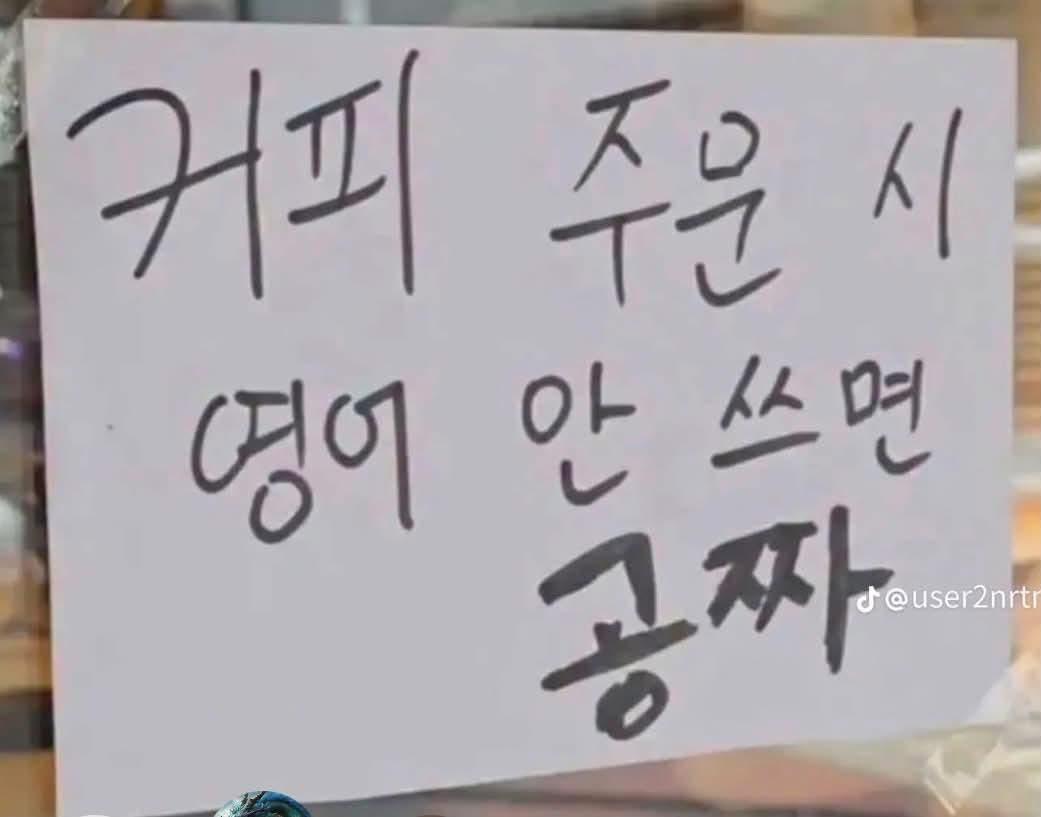 커피 주운 시
영어 안 쓰면
공짜
@user2nrtr